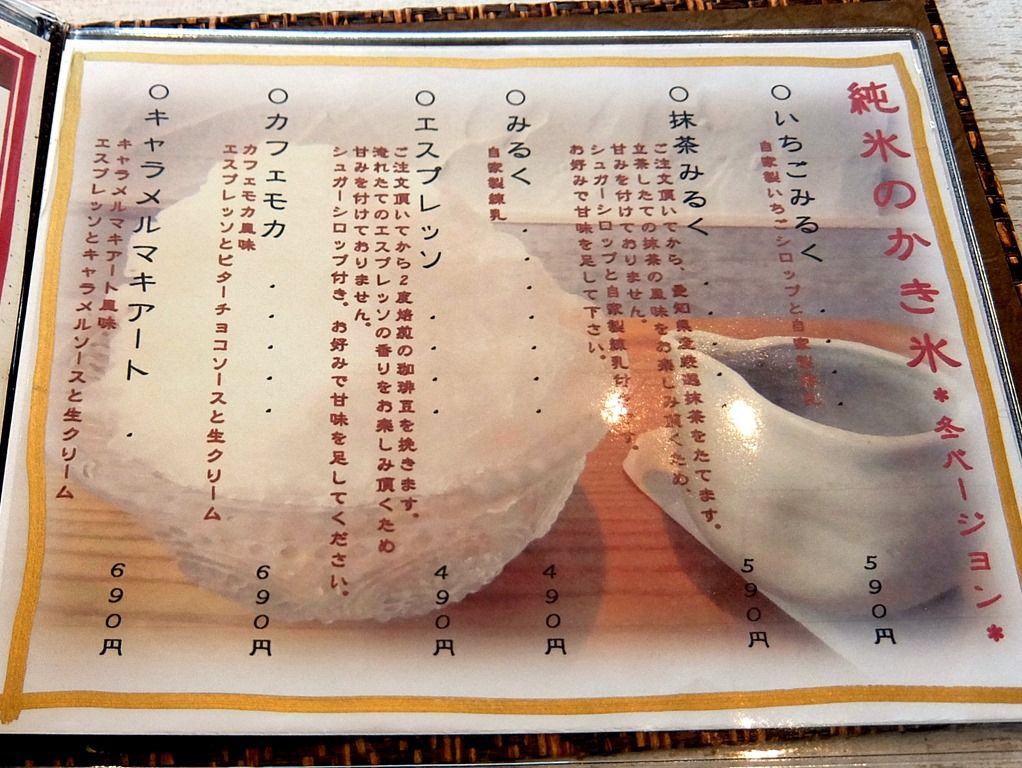 純氷のかき氷*冬バージョン*
○いちごみるく・・・・590円
自家製いちごシロップと自家製練乳
○抹茶みるく・・・・590円
ご注文頂いてから、愛知県産厳選抹茶をたてます。
立茶したての抹茶の風味をお楽しみ頂くため、
甘みを付けておりません。
シュガーシロップと自家製練乳付きです。
お好みで甘味を足して下さい。
○みるく・・・・490円
自家製練乳
○エスプレッソ・・・490円
ご注文頂いてから2度焙煎の珈琲豆を挽きます。
淹れたてのエスプレッソの香りをお楽しみ頂くため
甘みを付けておりません。
シュガーシロップ付き。お好みで甘味を足してください。
○カフェモカ・・・・690円
カフェモカ風味
エスプレッソとビターチョコソースと生クリーム
○キャラメルマキアート・690円
キャラメルマキアート風味
エスプレッソとキャラメルソースと生クリーム